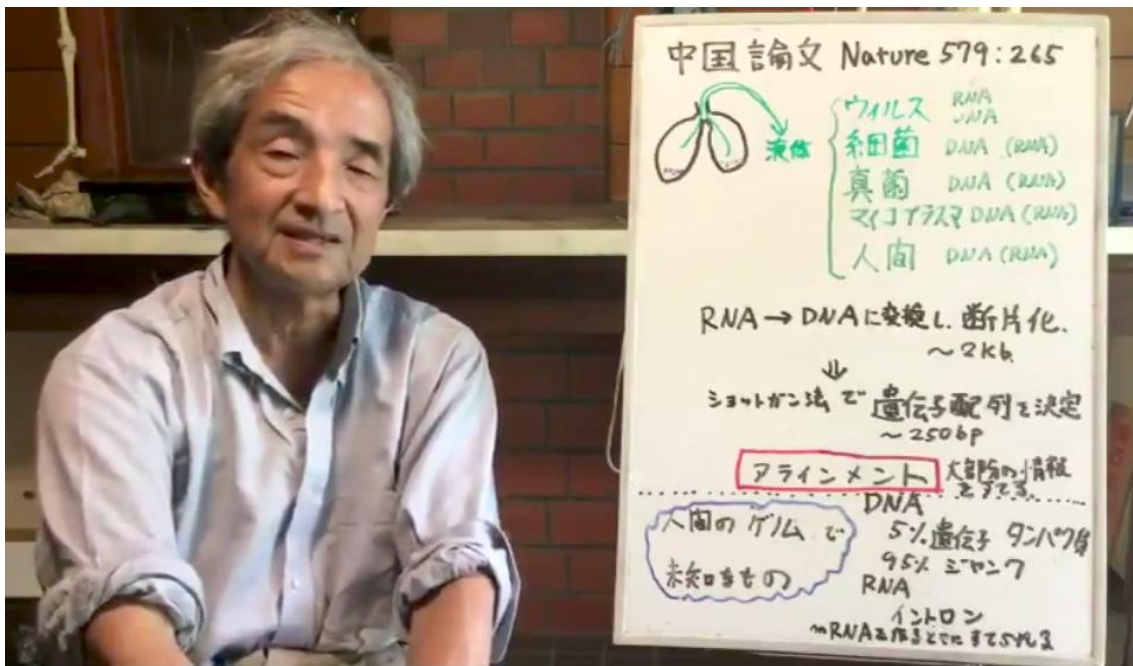 中国論文 Nature 579:265
ウィルス RNA
DNA
液体
細菌 DNA (RNA)
真菌 DNA (RNA)
マイコプラズマ DNA (RNA)
人間 DNA (RNA)
RNA→DNAに変換し、断片化、
~2Kb
⇓
ショットガン法で遺伝子配列を決定
~250bp
アラインメント 大部分の情報
をすてる
DNA
人間のゲノムで
未知なもの
5%遺伝子 タンパク質
95% ジャンク
RNA
イントロン
mRNAを作るときにすてられる